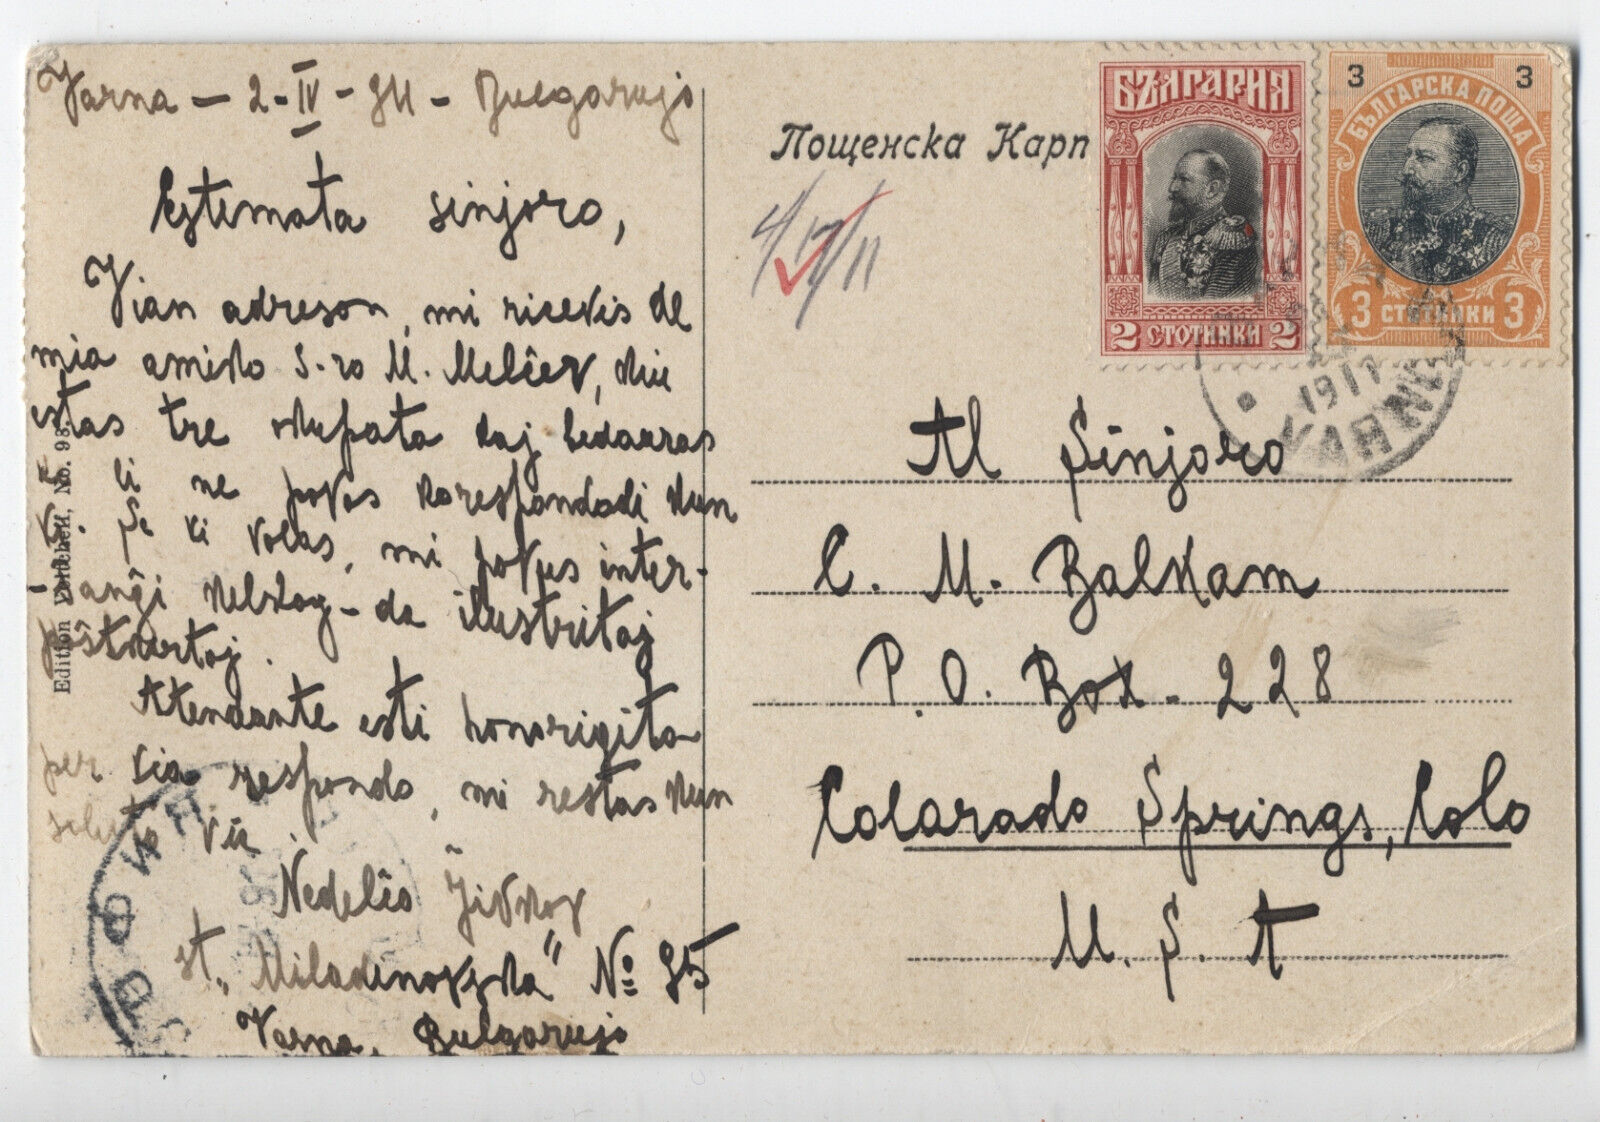 Varna — 2-IV-911 - Bulgarujo
Estimata sinjoro,
Vian adreson, mi ricevis de
mia amiko S-ro M. Melĉev, kiu
estas tre okupata kaj bedauras
ke li ne povas korespondadi kun
vi. Se vi volas, mi povus inter-
-ŝanĝi kelkaj-da ilustritaj
poŝtkartaj.
Atendante esti honorigita
per via respondo, mi restas kun
saluto via
Nedelĉo Ĵivkov
st. „Miladinovska" № 95
Varna, Bulgarujo
Edition No. 98.
Пощенска Карп
4/17/11
БЪЛГАРИЯ
2 СТОТИНКИ 2
3 3
БЪЛГАРСКА ПОЩА
3 СТОТИНКИ 3
1911
VARNA
Al Sinjoro
C. M. Balkam
P. O. Box - 228
Colorado Springs, Colo
U. S. A
СОФИЯ